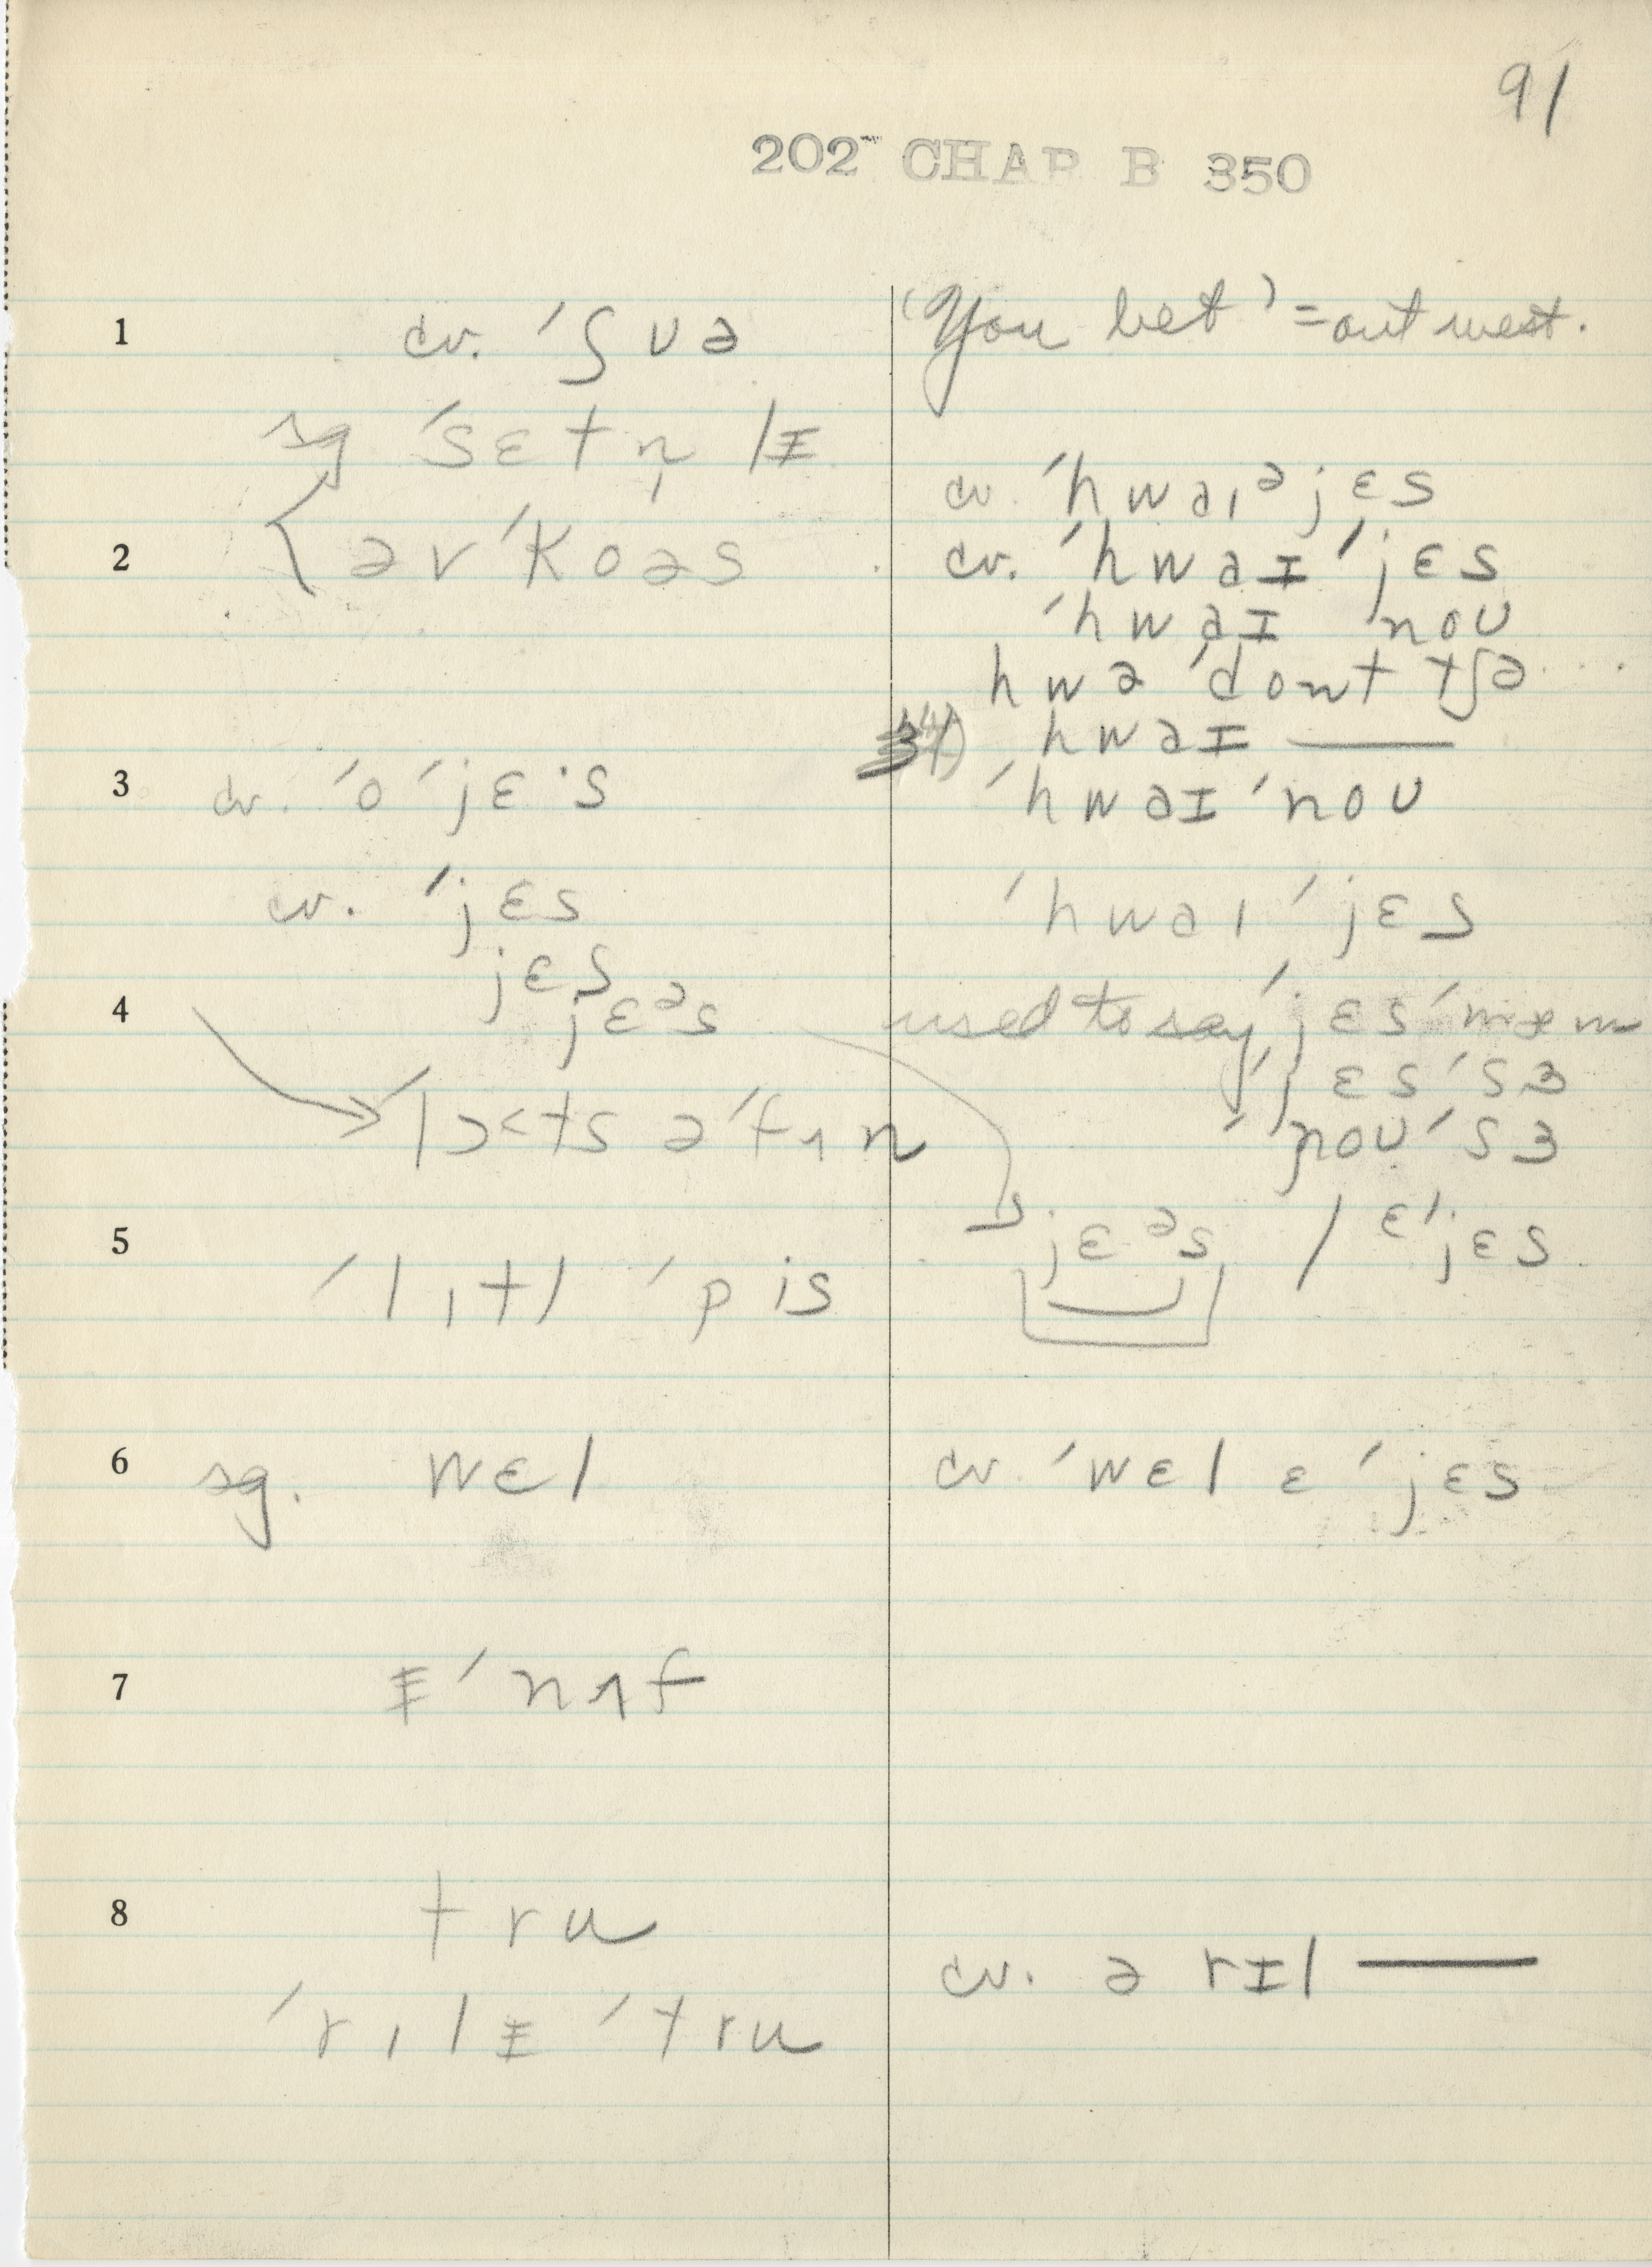 91
202 CHAP B 350
1 cv. ˈʃʊə
sg ˈsɛtn̩lɪ
2 əvˈkoəs
3 cv. ˈoˈjɛ·s
cv. ˈjɛs
jɛs
4 jɛᵊs
ˈlɔ˂ts əˈfʌn
5 ˈlɪtl ˈpis
6 sg. wɛl
7 ɪˈnʌf
8 tru
ˈrɪlɪ ˈtru
'You bet' = out west.
cv. ˈhwaɪᵊjɛs
cv. ˈhwaɪˈjɛs
ˈhwaɪ ˈnoʊ
hwə ˈdont tʃə....
4) hwaɪ ———
ˈhwaɪˈnoʊ
ˈhwaɪˈjɛs
used to say ˈjɛsˈmæm
ˈjɛsˈsɜ
ˈnoʊˈsɜ
jɛᵊs / ɛˈjɛs
cv. ˈwɛl ɛˈjɛs
cv. ə rɪl ———